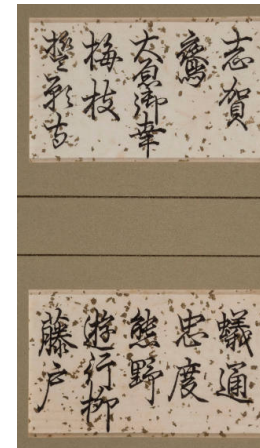 志賀
鷺
大原御幸
梅枝
誓願寺
蟻通
忠度
熊野
遊行柳
藤戸